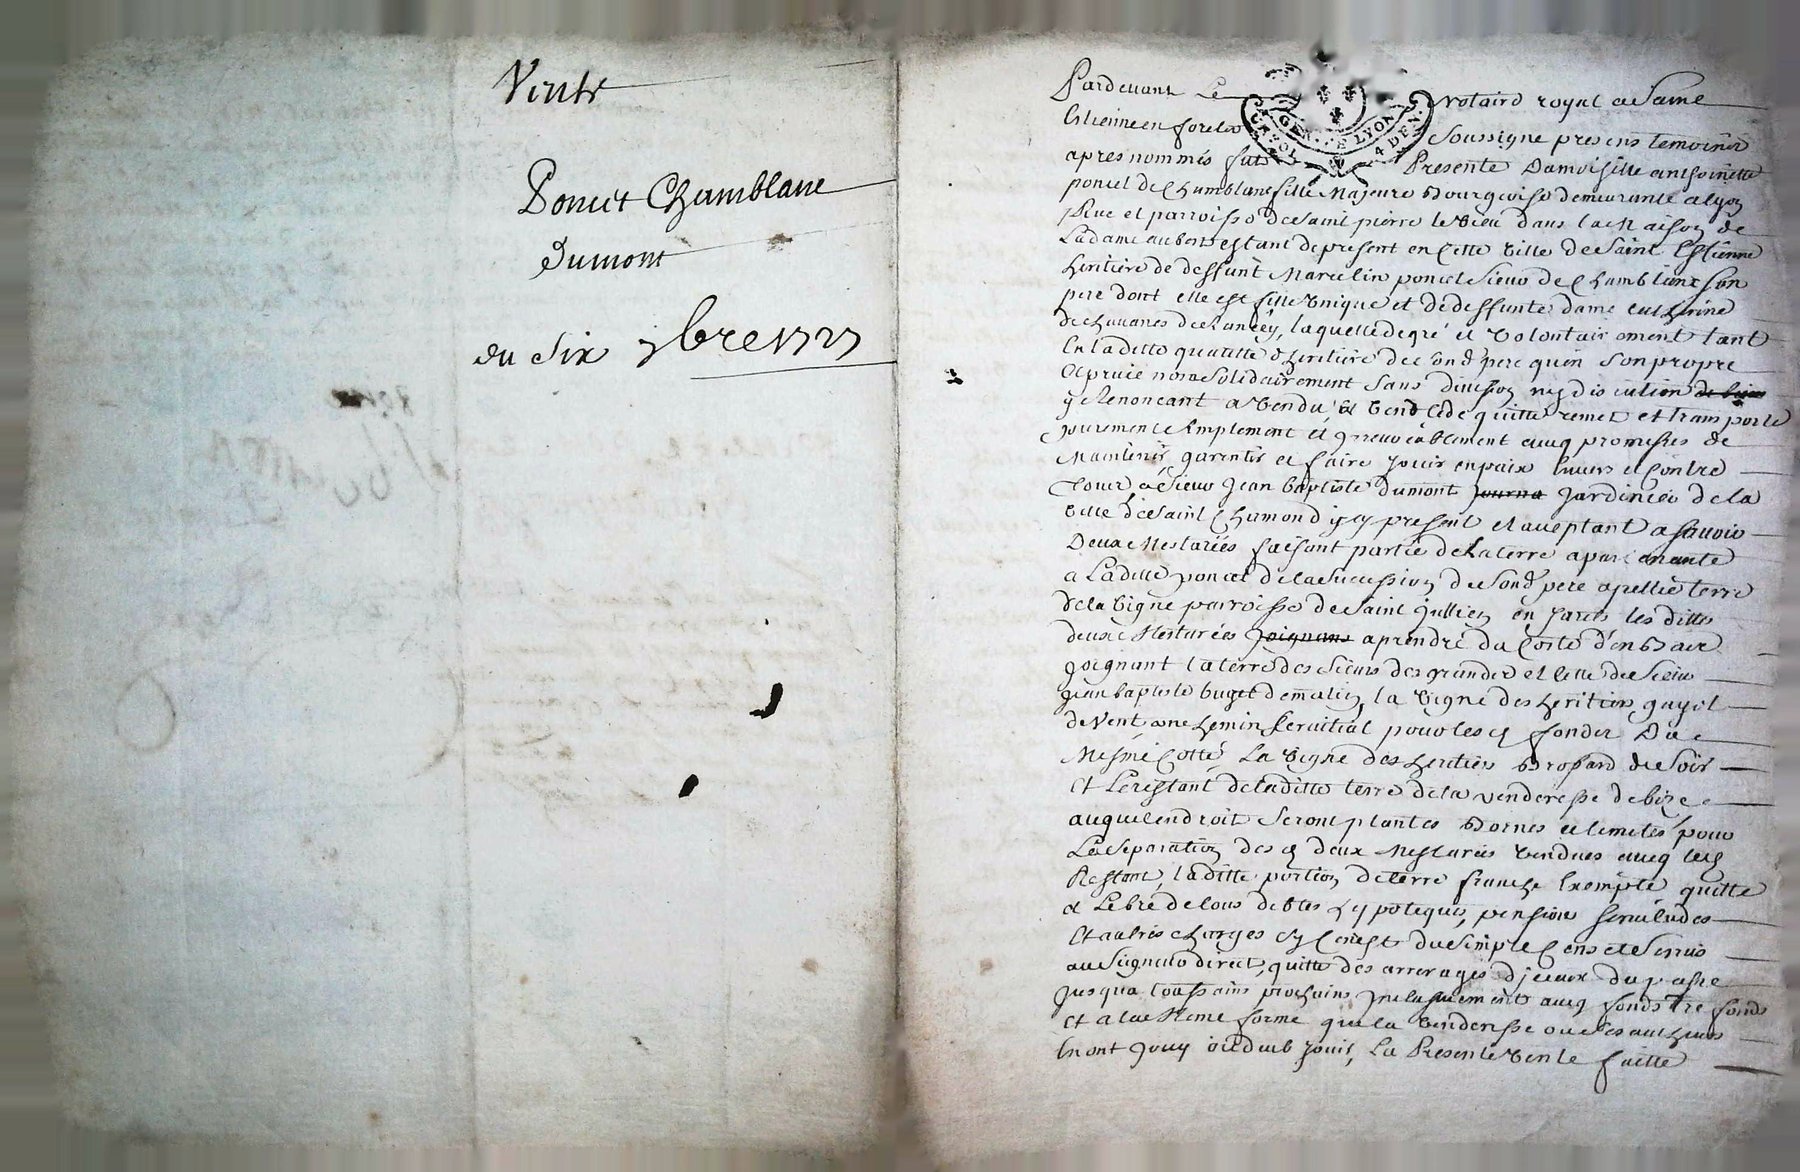 Vente
Poncet Chamblane
Dumont
du six 9bre 1727
GEN. DE LYON
4 DEN.
Pardevant Le Notaire royal a Saint
Estienne en forets Soussigné presens temoins
apres nommés fut Presente Damoiselle anthoinette
poncet de Chamblane fille Majeure Bourgoise demeurante a lyon
Rue et parroisse de Saint pierre le vieu dans la Maison de
La dame aubert estant de present en Cette ville de Saint Estienne
heritiere de deffunt Marcelin poncet Sieur de Chamblane Son
pere dont elle est fille unique et de deffunte dame catherine
de chavanes de laquelle de gré et volontairement tant
En laditte qualitté d'heritiere de Sond pere qu'en Son propre
et privé nom Solidairement Sans division ny discution
y Renoncant a vendu et vend cede quitte remet et transporte
purement Simplement et yrrevocablement avecq promesses de
Maintenir garentir et faire jouir en paix Envers et Contre
Tous a Sieur Jean baptiste dumont jardinier de la
ville de Saint Chamond icy present et acceptant a scavoir
Deux Mesturées faisant partie de La terre apartenante
a Laditte poncet de la Succession de Sond pere apellée terre
de la vigne parroisse de Saint jullien en jarets les dittes
deux Mesturées a prendre du Costé d'en Bas
joignant la terre des Sieurs des grandes et celle de Sieur
jean baptiste buget de matin, la vigne des heritiers guyot
de vent un chemin Servitial pour les fonds Du
Mesme Cotté, La vigne des heritiers Brossard de Soir
Et Le restant de laditte terre de la venderesse de bize
auquel endroit Seront plantés Bornes et limites pour
La Separation des d deux Mesturées vendues avecq led
Restant, laditte portion de terre franche Exempte quitte
et Libre de tous debtes hypoteques, pension servitudes
Et autres charges Sy Ce n'est du Simple Cens et Servis
au Seigneur direct, quitte des arrerages d'iceux du passé
jusqu'a toussains prochains jnclusivement avecq fonds tre fonds
Et a la Meme forme que la venderesse ou Ses autheurs
En ont jouy ou deub jouir, La Presente vente faitte